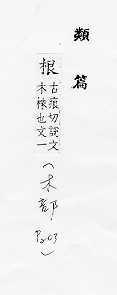 類篇
根
古痕切說文
木株也文一
(木部.